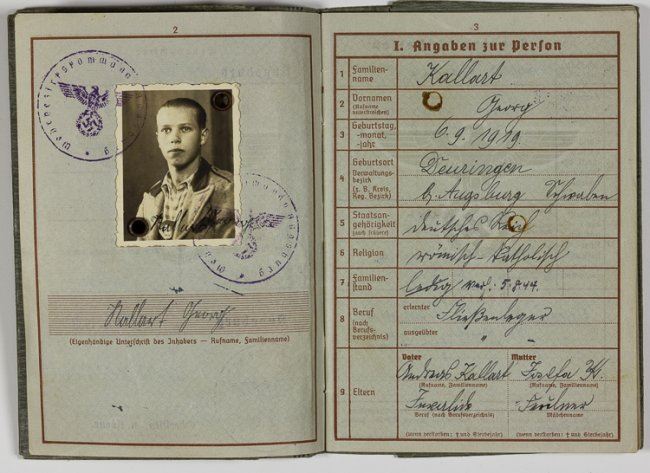 2
Wehrbezirkskommando Augsburg
Kallart Georg
(Eigenhändige Unterschrift des Inhabers — Rufname, Familienname)
3
I. Angaben zur Person
1 Familienname Kallart
2 Vornamen (Rufname unterstreichen) Georg
3 Geburtstag, -monat, -jahr 6.9.1919.
4 Geburtsort Verwaltungsbezirk (z. B. Kreis, Reg. Bezirk) Deuringen
b. Augsburg Schwaben
5 Staatsangehörigkeit (auch frühere) deutsches Reich
6 Religion römisch-katholisch
7 Familienstand ledig verh: 5.8.44.
8 Beruf (nach Berufsverzeichnis) erlernter Fließenleger
ausgeübter "
9 Eltern
Vater Mutter
Andreas Kallart
(Rufname, Familienname) (Rufname, Familienname)
Invalide
Beruf (nach Berufsverzeichnis) Mädchenname
(wenn verstorben: † und Sterbejahr) (wenn verstorben: † und Sterbejahr)